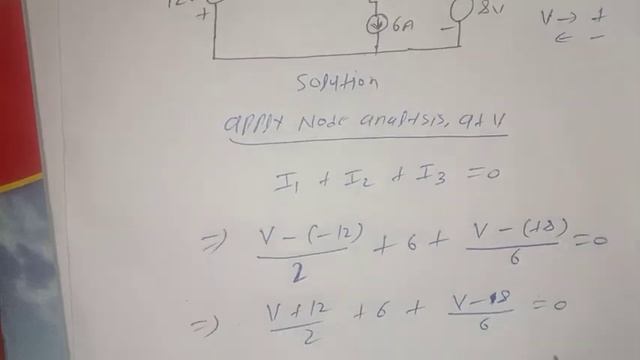 12
+
6A
8V
-
V → +
← -
Solution
Apply Node analysis, at V
I₁ + I₂ + I₃ = 0
⇒ V-(-12)/2 + 6 + V-(+8)/6 = 0
⇒ V+12/2 + 6 + V-8/6 = 0